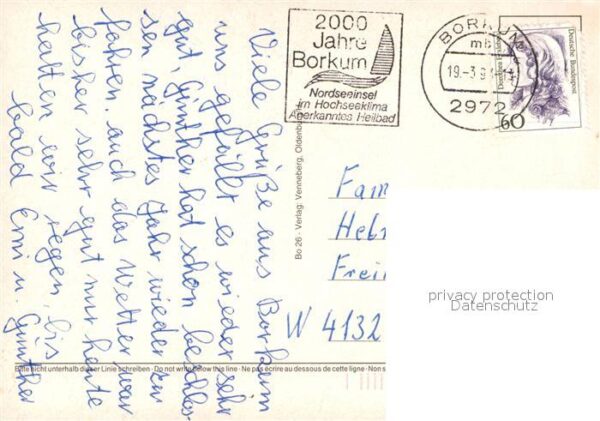 Viele Grüße aus Borkum
uns gefällt es wieder sehr
gut, Günther hat schon beschlos-
sen nächstes Jahr wieder zu
fahren. auch das Wetter war
bisher sehr gut nur heute
hatten wir regen, bis
bald Erni u. Günther
2000
Jahre
Borkum
Nordseeinsel
im Hochseeklima
Anerkanntes Heilbad
BORKUM
19.-3.9
2972
Deutsche Bundespost
60
Bo 26 · Verlag: Venneberg, Oldenburg
Fam
Heb
Frei
W 4132
privacy protection
Datenschutz
Bitte nicht unterhalb dieser Linie schreiben · Do not write below this line · Ne pas écrire au dessous de cette ligne · Non s